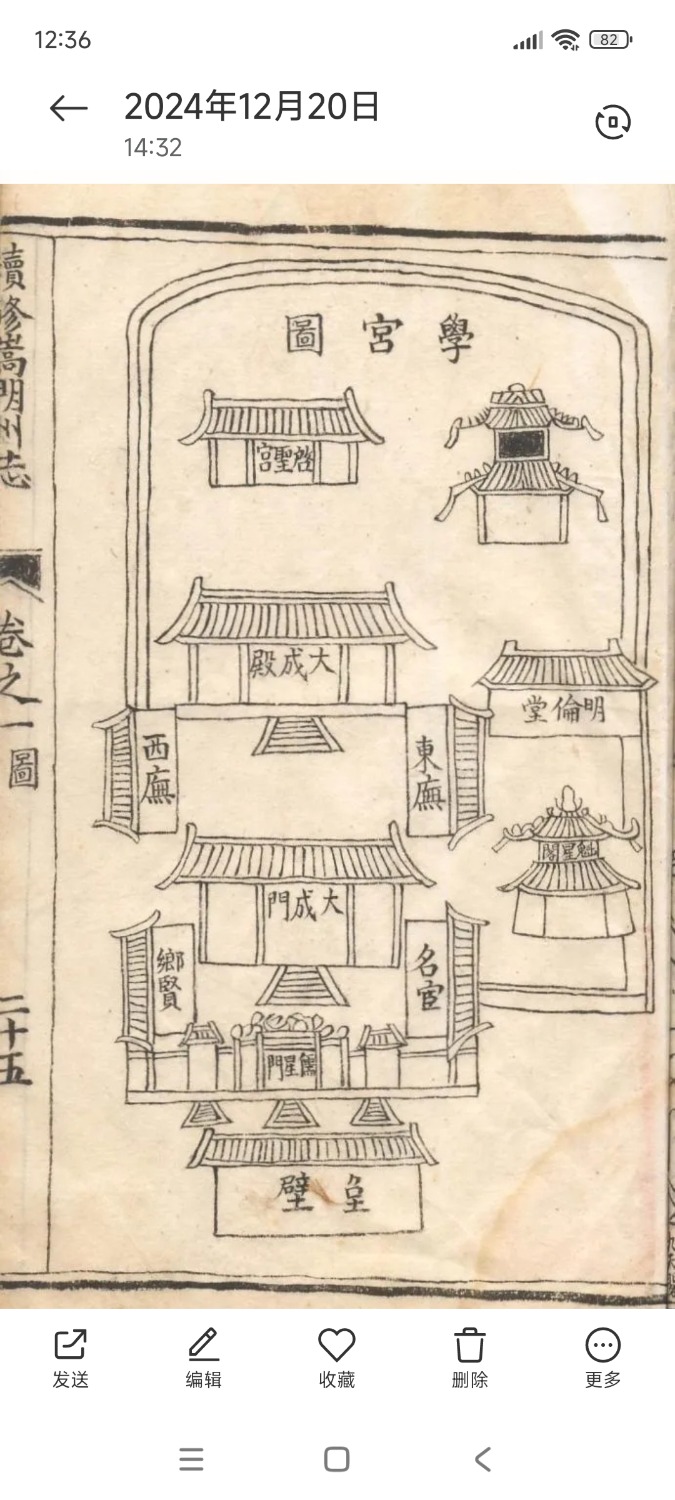 12:36
82
2024年12月20日
14:32
續修嵩明州志
卷之一
圖
二十五
學宮圖
啟聖宮
大成殿
明倫堂
東廡
西廡
魁星閣
大成門
名宦
鄉賢
星門
壁
发送
编辑
收藏
删除
更多